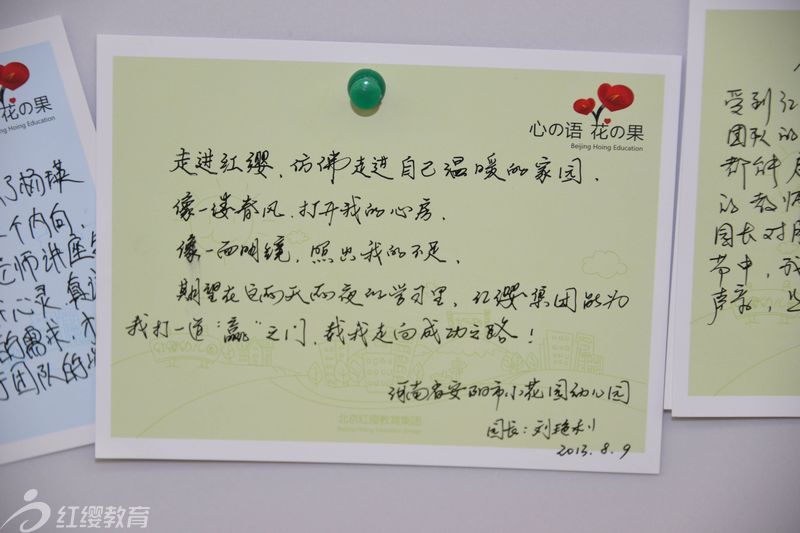 花の果
杨瑛
个内向,
师讲座
心灵,
的需求,
团队的
心の语 花の果
Beijing Hoing Education
走进红缨,仿佛走进自己温暖的家园,
像一缕春风,打开我的心房,
像一面明镜,照出我的不足,
期望在这两天两夜的学习里,红缨集团能为
我打一道"赢"之门,载我走向成功之路!
河南省安阳市小花园幼儿园
园长:刘艳利
2013.8.9
北京红缨教育集团
Beijing Hoing Education Group
受到红
团队的
都能
的教师
园长对
节中,我
声亲,
红缨教育